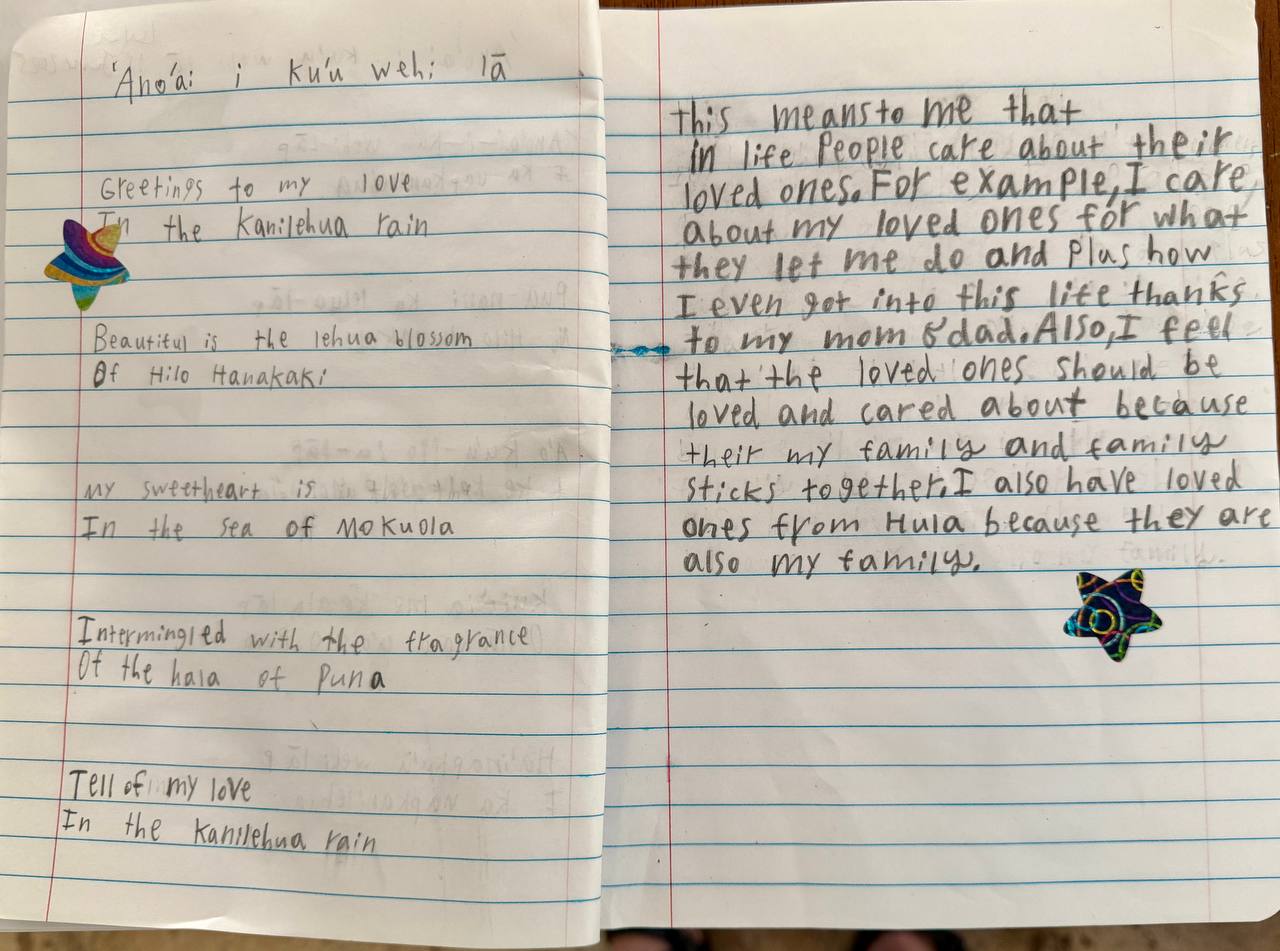 'Ano'ai i ku'u wehi lā
Greetings to my love
In the Kanilehua rain
Beautiful is the lehua blossom
Of Hilo Hanakaki
My sweetheart is
In the sea of Mokuola
Intermingled with the fragrance
Of the hala of Puna
Tell of my love
In the kanilehua rain
this means to me that
in life People care about their
loved ones. For example, I care
about my loved ones for what
they let me do and Plus how
I even got into this life thanks
to my mom & dad. Also, I feel
that the loved ones should be
loved and cared about because
their my family and family
sticks together. I also have loved
ones from Hula because they are
also my family.